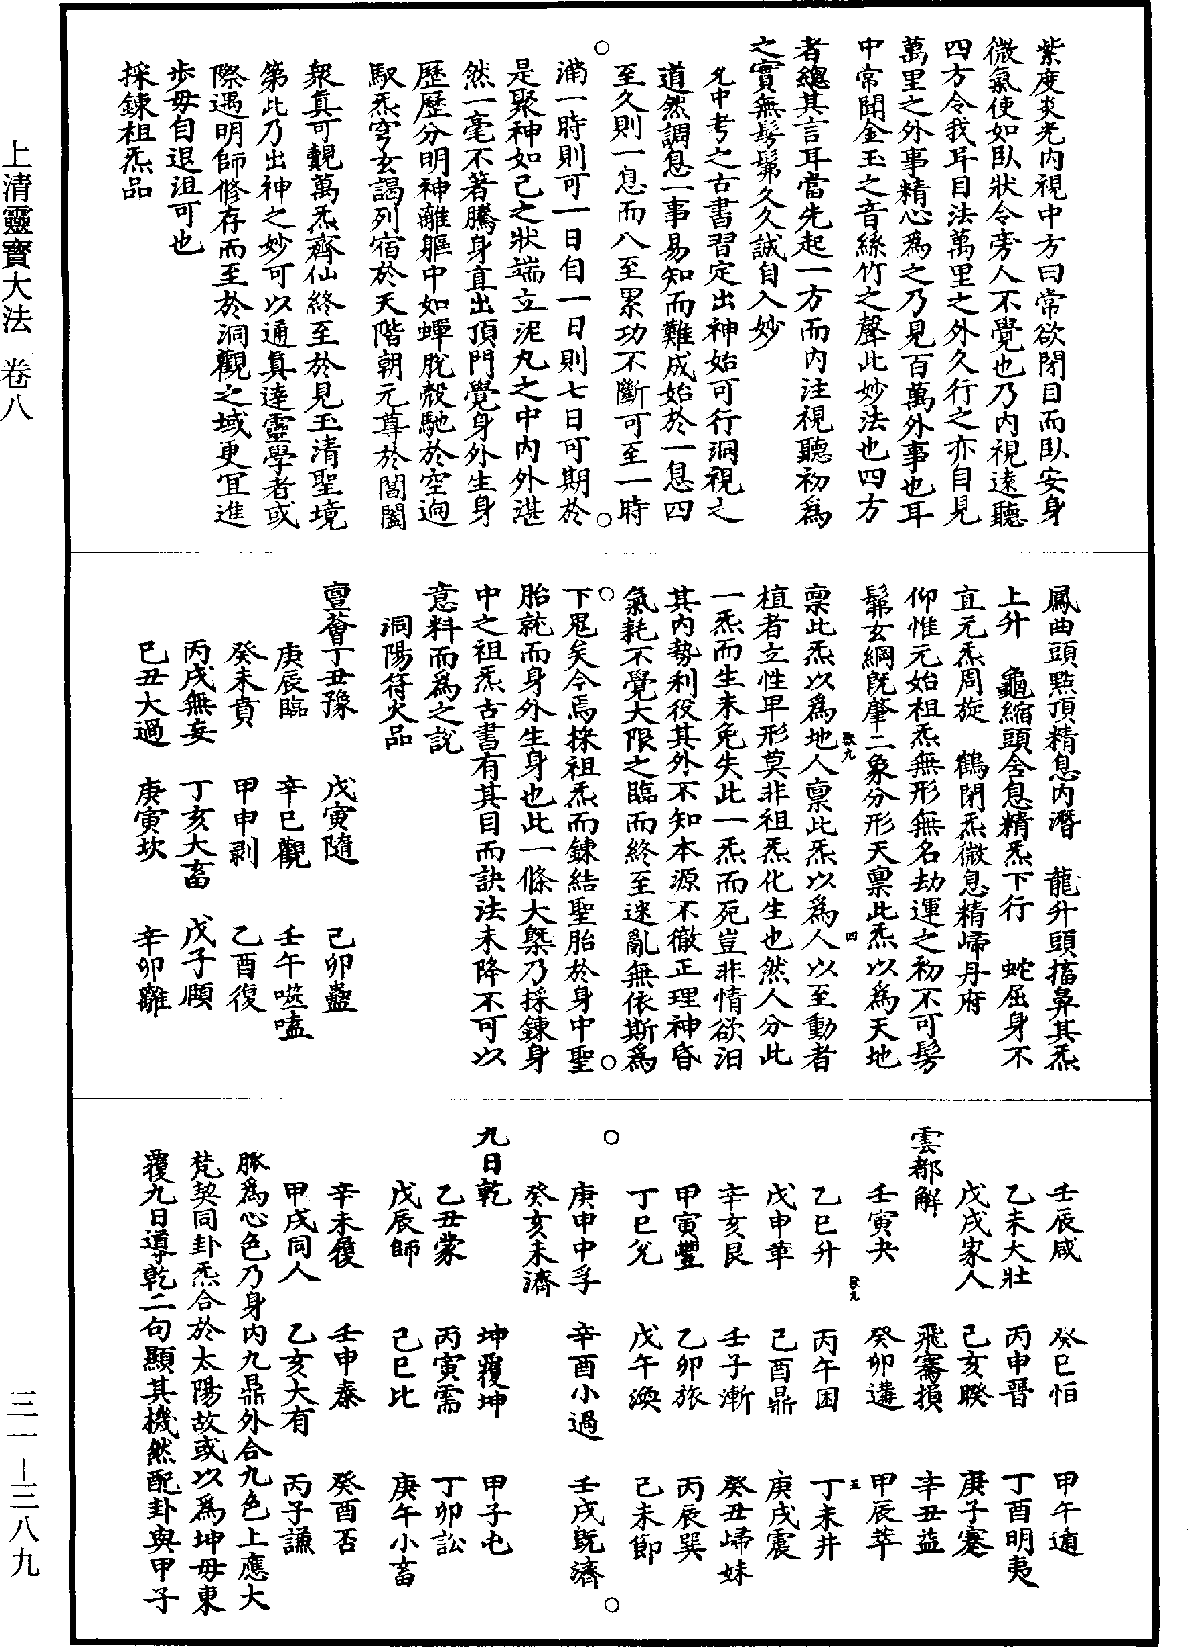 紫度炎光內視中方曰常欲閉目而臥安身
微氣使如臥狀令旁人不覺也乃內視遠聽
四方令我耳目法萬里之外久行之亦自見
萬里之外事精心為之乃見百萬外事也耳
中常聞金玉之音絲竹之聲此妙法也四方
者總其言耳當先起一方而內注視聽初為
之實無髣髴久久誠自入妙
允中考之古書習定出神始可行洞視之
道然調息一事易知而難成始於一息四
至久則一息而八至累功不斷可至一時
滿一時則可一日自一日則七日可期於
是聚神如己之狀端立泥丸之中內外湛
然一毫不著騰身直出頂門覺身外生身
歷歷分明神離軀中如蟬脫殼馳於空迥
馭炁穹玄謁列宿於天階朝元尊於閶闔
衆真可覩萬炁齊仙終至於見玉清聖境
第此乃出神之妙可以通真達靈學者或
際遇明師修存而至於洞觀之域更宜進
步毋自退沮可也
採鍊祖炁品
鳳曲頭點頂精息內潛　龍升頭搐鼻其炁
上升　龜縮頭含息精炁下行　蛇屈身不
直元炁周旋　鶴閉炁微息精歸丹府
仰惟元始祖炁無形無名劫運之初不可髣
髴玄綱既肇二象分形天禀此炁以為天地
禀此炁以為地人禀此炁以為人以至動者
植者立性甲形莫非祖炁化生也然人分此
一炁而生未免失此一炁而死豈非情欲汩
其內勢利役其外不知本源不徹正理神昏
氣耗不覺大限之臨而終至迷亂無依斯為
下鬼矣今焉採祖炁而鍊結聖胎於身中聖
胎就而身外生身也此一條大槩乃採鍊身
中之祖炁古書有其目而訣法未降不可以
意料而為之說
洞陽符火品
亶會丁丑豫　戊寅隨　己卯蠱
庚辰臨　辛巳觀　壬午噬嗑
癸未賁　甲申剥　乙酉復
丙戌無妄　丁亥大畜　戊子頤
己丑大過　庚寅坎　辛卯離
壬辰咸　癸巳恒　甲午遁
乙未大壯　丙申晉　丁酉明夷
戊戌家人　己亥睽　庚子蹇
雲都解　飛騫損　辛丑益
壬寅夬　癸卯遘　甲辰萃
乙巳升　丙午困　丁未井
戊申革　己酉鼎　庚戌震
辛亥艮　壬子漸　癸丑歸妹
甲寅豐　乙卯旅　丙辰巽
丁巳兌　戊午渙　己未節
庚申中孚　辛酉小過　壬戌既濟
癸亥未濟
九日乾　坤覆坤　甲子屯
乙丑蒙　丙寅需　丁卯訟
戊辰師　己巳比　庚午小畜
辛未履　壬申泰　癸酉否
甲戌同人　乙亥大有　丙子謙
脈為心色乃身內九鼎外合九色上應大
梵契同卦炁合於太陽故或以為坤母東
覆九日導乾二句顯其機然配卦與甲子
上清靈寶大法　卷八
三一－三八九